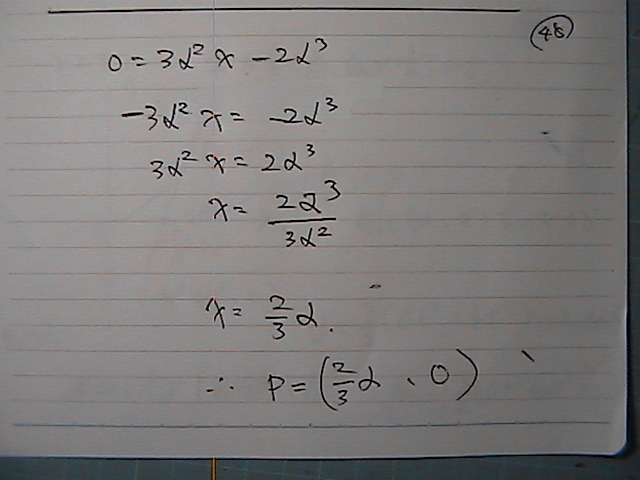 (48)
0 = 3α²x - 2α³
-3α²x = -2α³
3α²x = 2α³
x = 2α³/3α²
x = 2/3 α.
∴ P = (2/3 α、0)